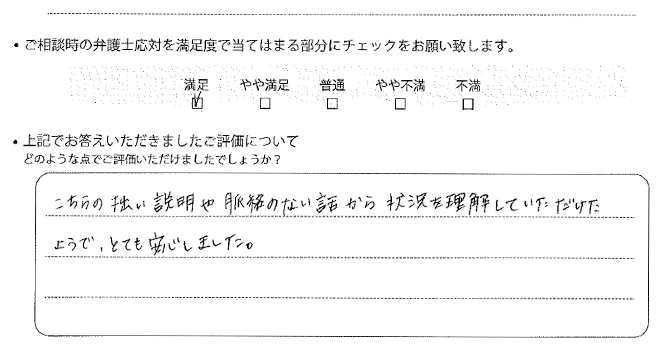 ・ご相談時の弁護士応対を満足度で当てはまる部分にチェックをお願い致します。
満足 やや満足 普通 やや不満 不満
☑ □ □ □ □
・上記でお答えいただきましたご評価について
どのような点でご評価いただけましたでしょうか？
こちらの拙い説明や脈絡のない話から状況を理解していただけた
ようで、とても安心しました。